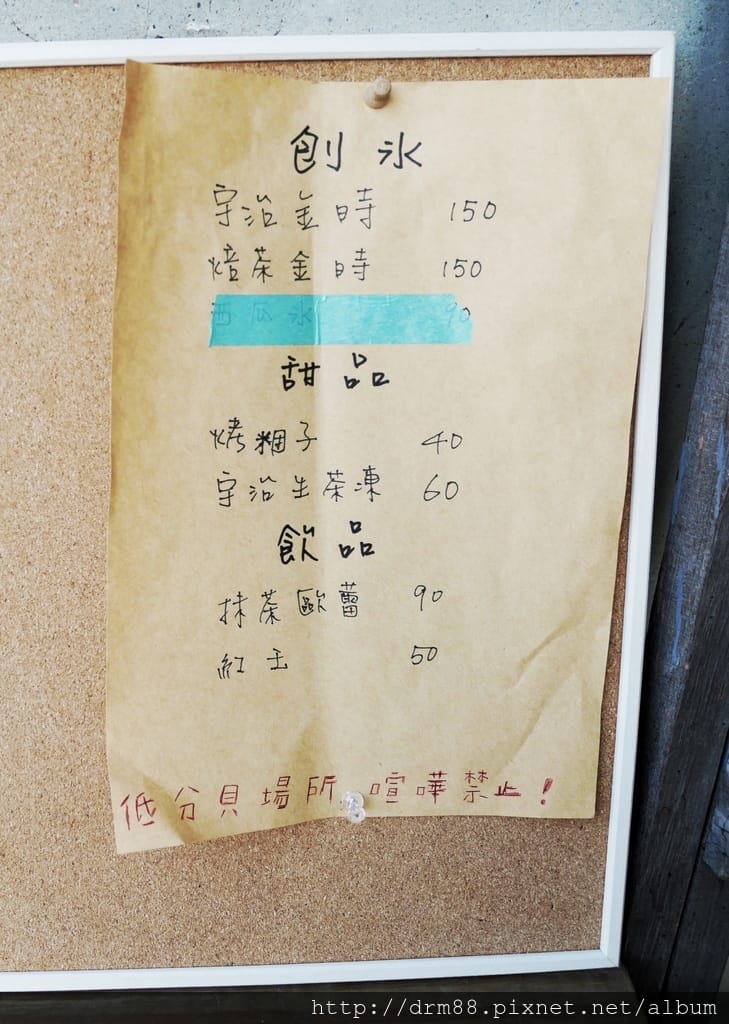 刨氷
宇治金時 150
焙茶金時 150
西瓜氷 90
甜品
烤糰子 40
宇治生茶凍 60
飲品
抹茶歐蕾 90
紅玉 50
低分貝場所,喧嘩禁止!
http://drm88.pixnet.net/album